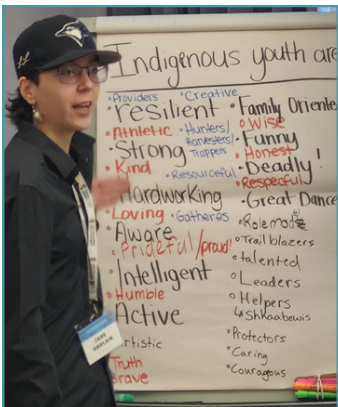 Indigenous youth are
• Providers • Creative
• resilient
• Athletic • Hunters/
Harvesters/
Trappers
• Strong
• Kind
• Resourceful
• Hardworking
• Loving • Gatheres
• Aware
• Prideful/proud!
• Intelligent
• Humble
• Active
Artistic
Truth
Brave
• Family Oriente
• Wise
• Funny
• Honest
• Deadly!
• Respecful
• Great Dance
• Role model
• Trail blazers
• talented
• Leaders
• Helpers
↳ Shkaabewis
• Protectors
• Caring
• Couragous